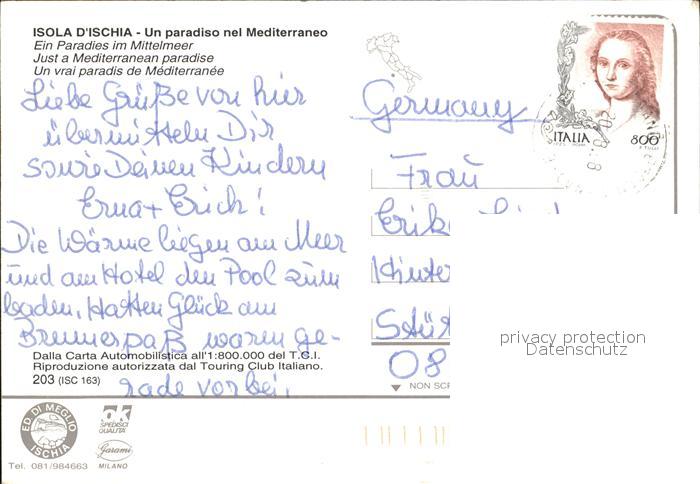 ISOLA D'ISCHIA - Un paradiso nel Mediterraneo
Ein Paradies im Mittelmeer
Just a Mediterranean paradise
Un vrai paradis de Méditerranée
Liebe Grüße von hier
übermitteln Dir
sowie Deinen Kindern
Erna + Erich!
Die Wärme liegen am Meer
und am Hotel den Pool zum
baden, Hatten Glück am
Brennerpaß waren ge-
rade vorbei,
Dalla Carta Automobilistica all'1:800.000 del T.C.I.
Riproduzione autorizzata dal Touring Club Italiano.
203 (ISC 163)
ED. DI MEGLIO
ISCHIA
Tel. 081/984663
ok
SPEDISCI
QUALITA'
Garami
MILANO
Germany
Frau
08
NON SCR
ITALIA
800
privacy protection
Datenschutz